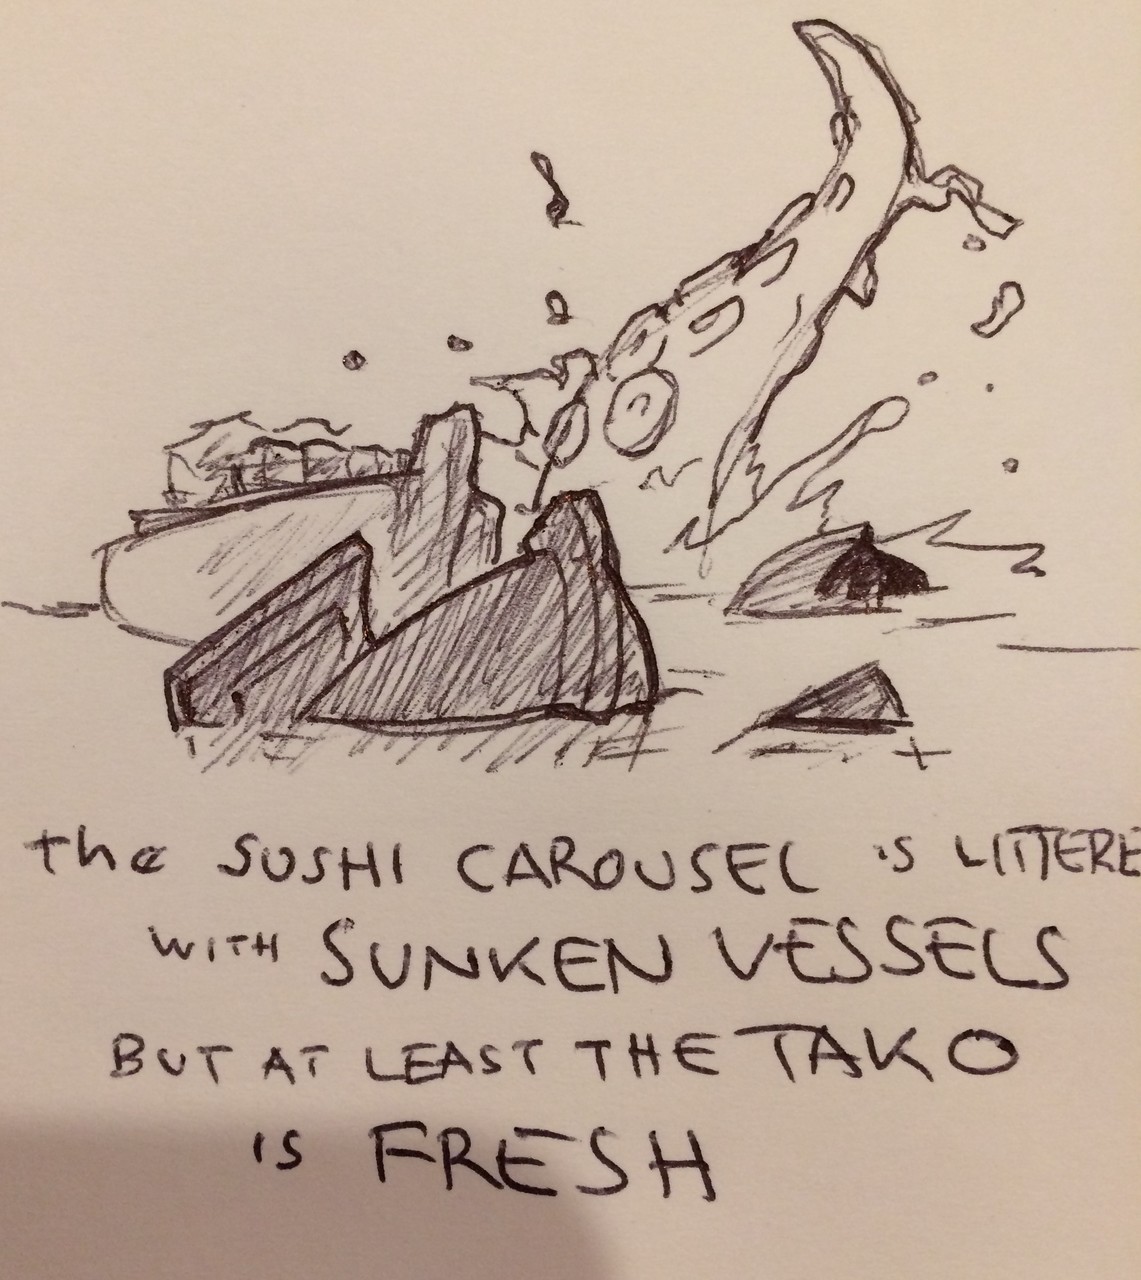 the SUSHI CAROUSEL is LITTERE
WITH SUNKEN VESSELS
BUT AT LEAST THE TAKO
IS FRESH